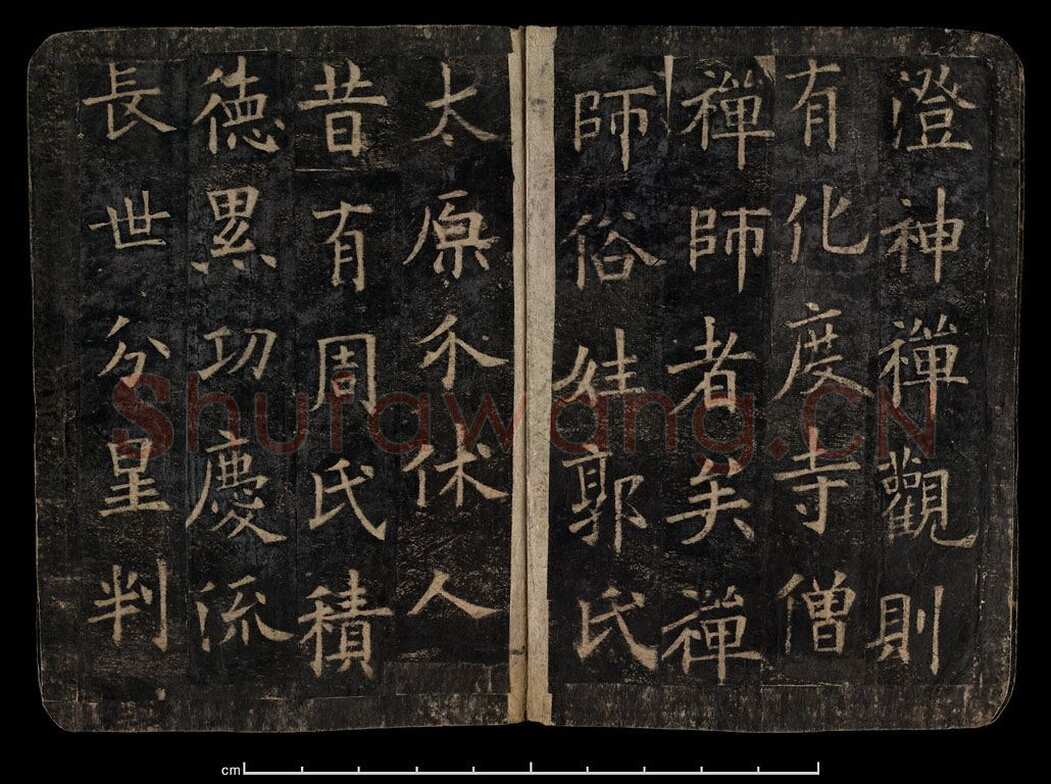 澄神禪觀則
有化度寺僧
禪師者矣禪
師俗姓郭氏
太原介休人
昔有周氏積
德累功慶流
長世分星判
Shufawang.CN
cm